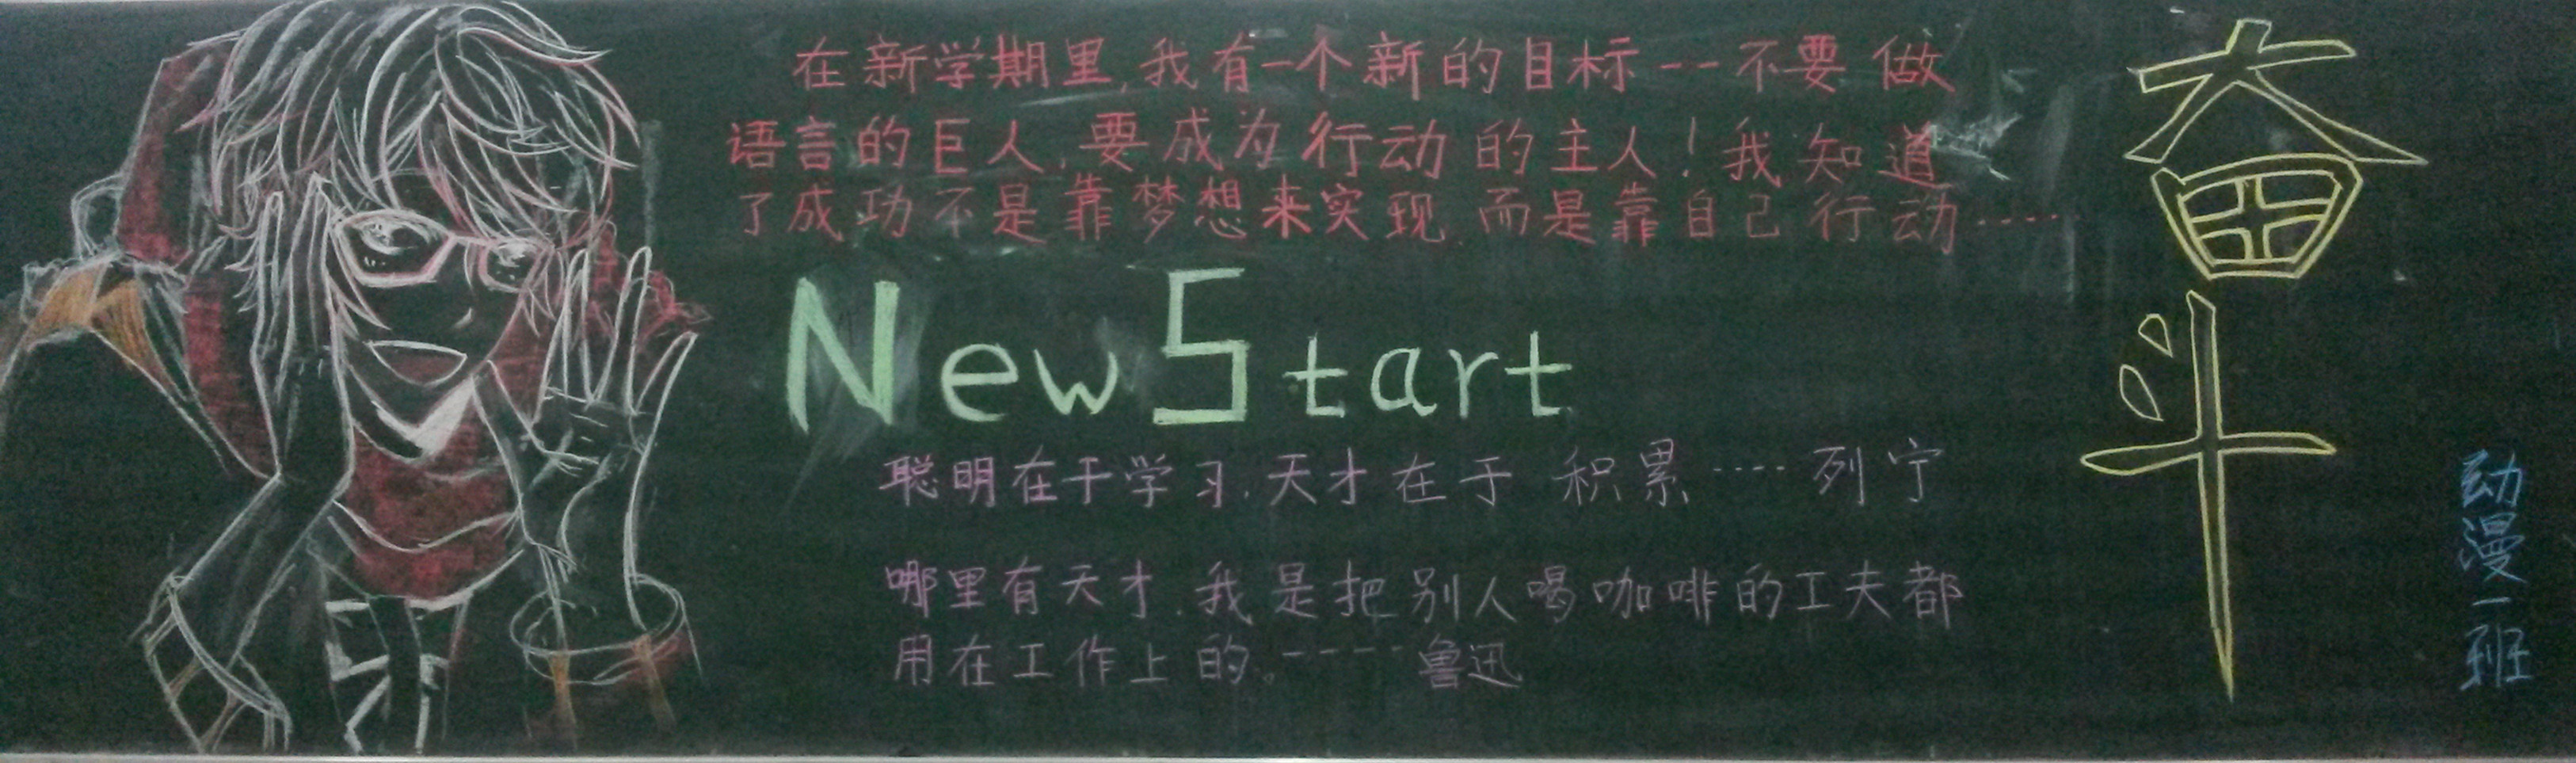 在新学期里,我有一个新的目标--不要做
语言的巨人,要成为行动的主人!我知道
了成功不是靠梦想来实现,而是靠自己行动……
New Start
聪明在于学习,天才在于积累----列宁
哪里有天才,我是把别人喝咖啡的工夫都
用在工作上的。-----鲁迅
奋斗
动漫一班